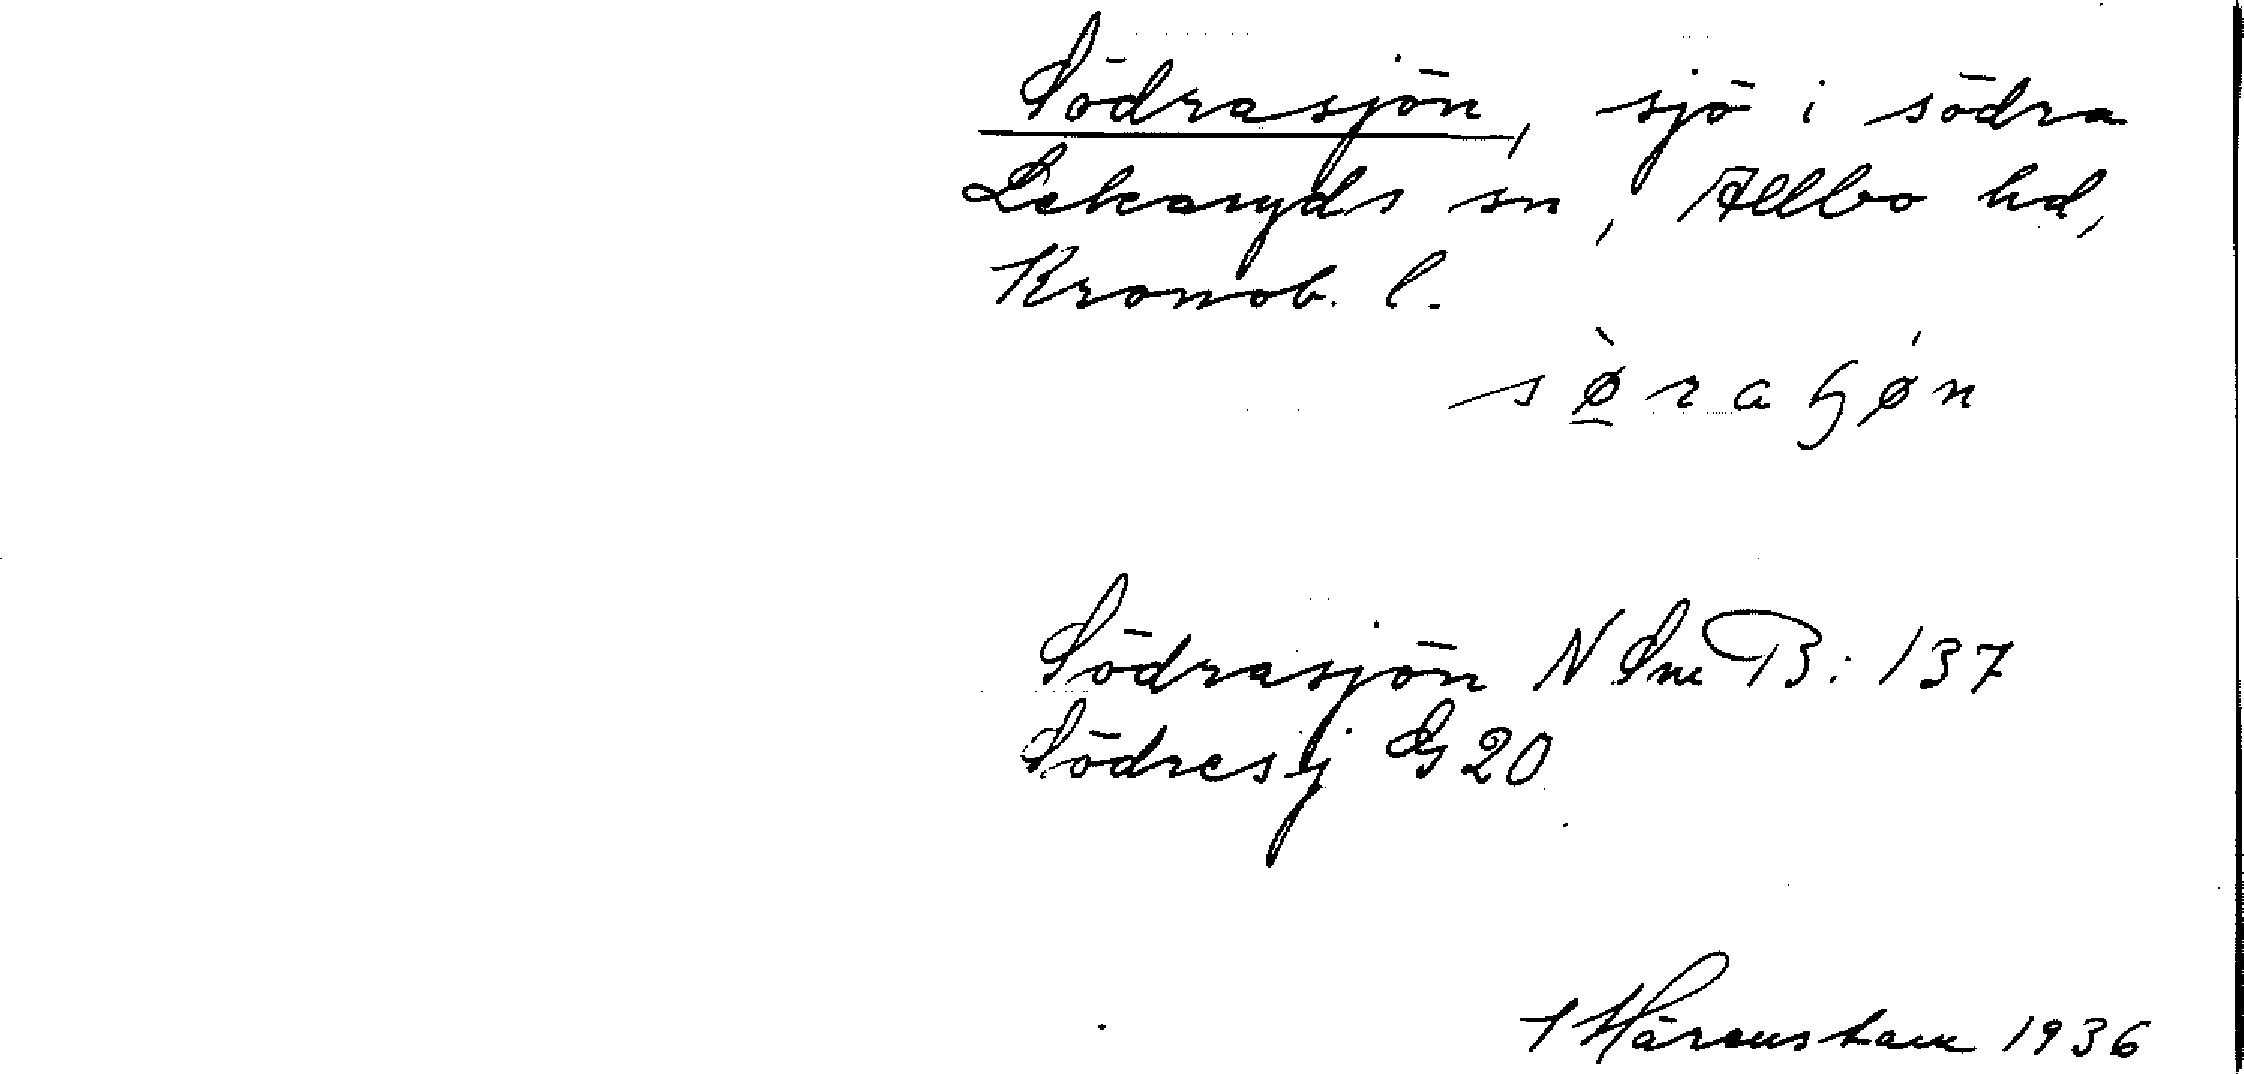 Södrasjön, sjö i södra
Lekaryds sn, Allbo hd,
Kronob. l.
sø̀raɧǿn
Södrasjön N Sm B: 137
Södresj G 20
Härenstam 1936